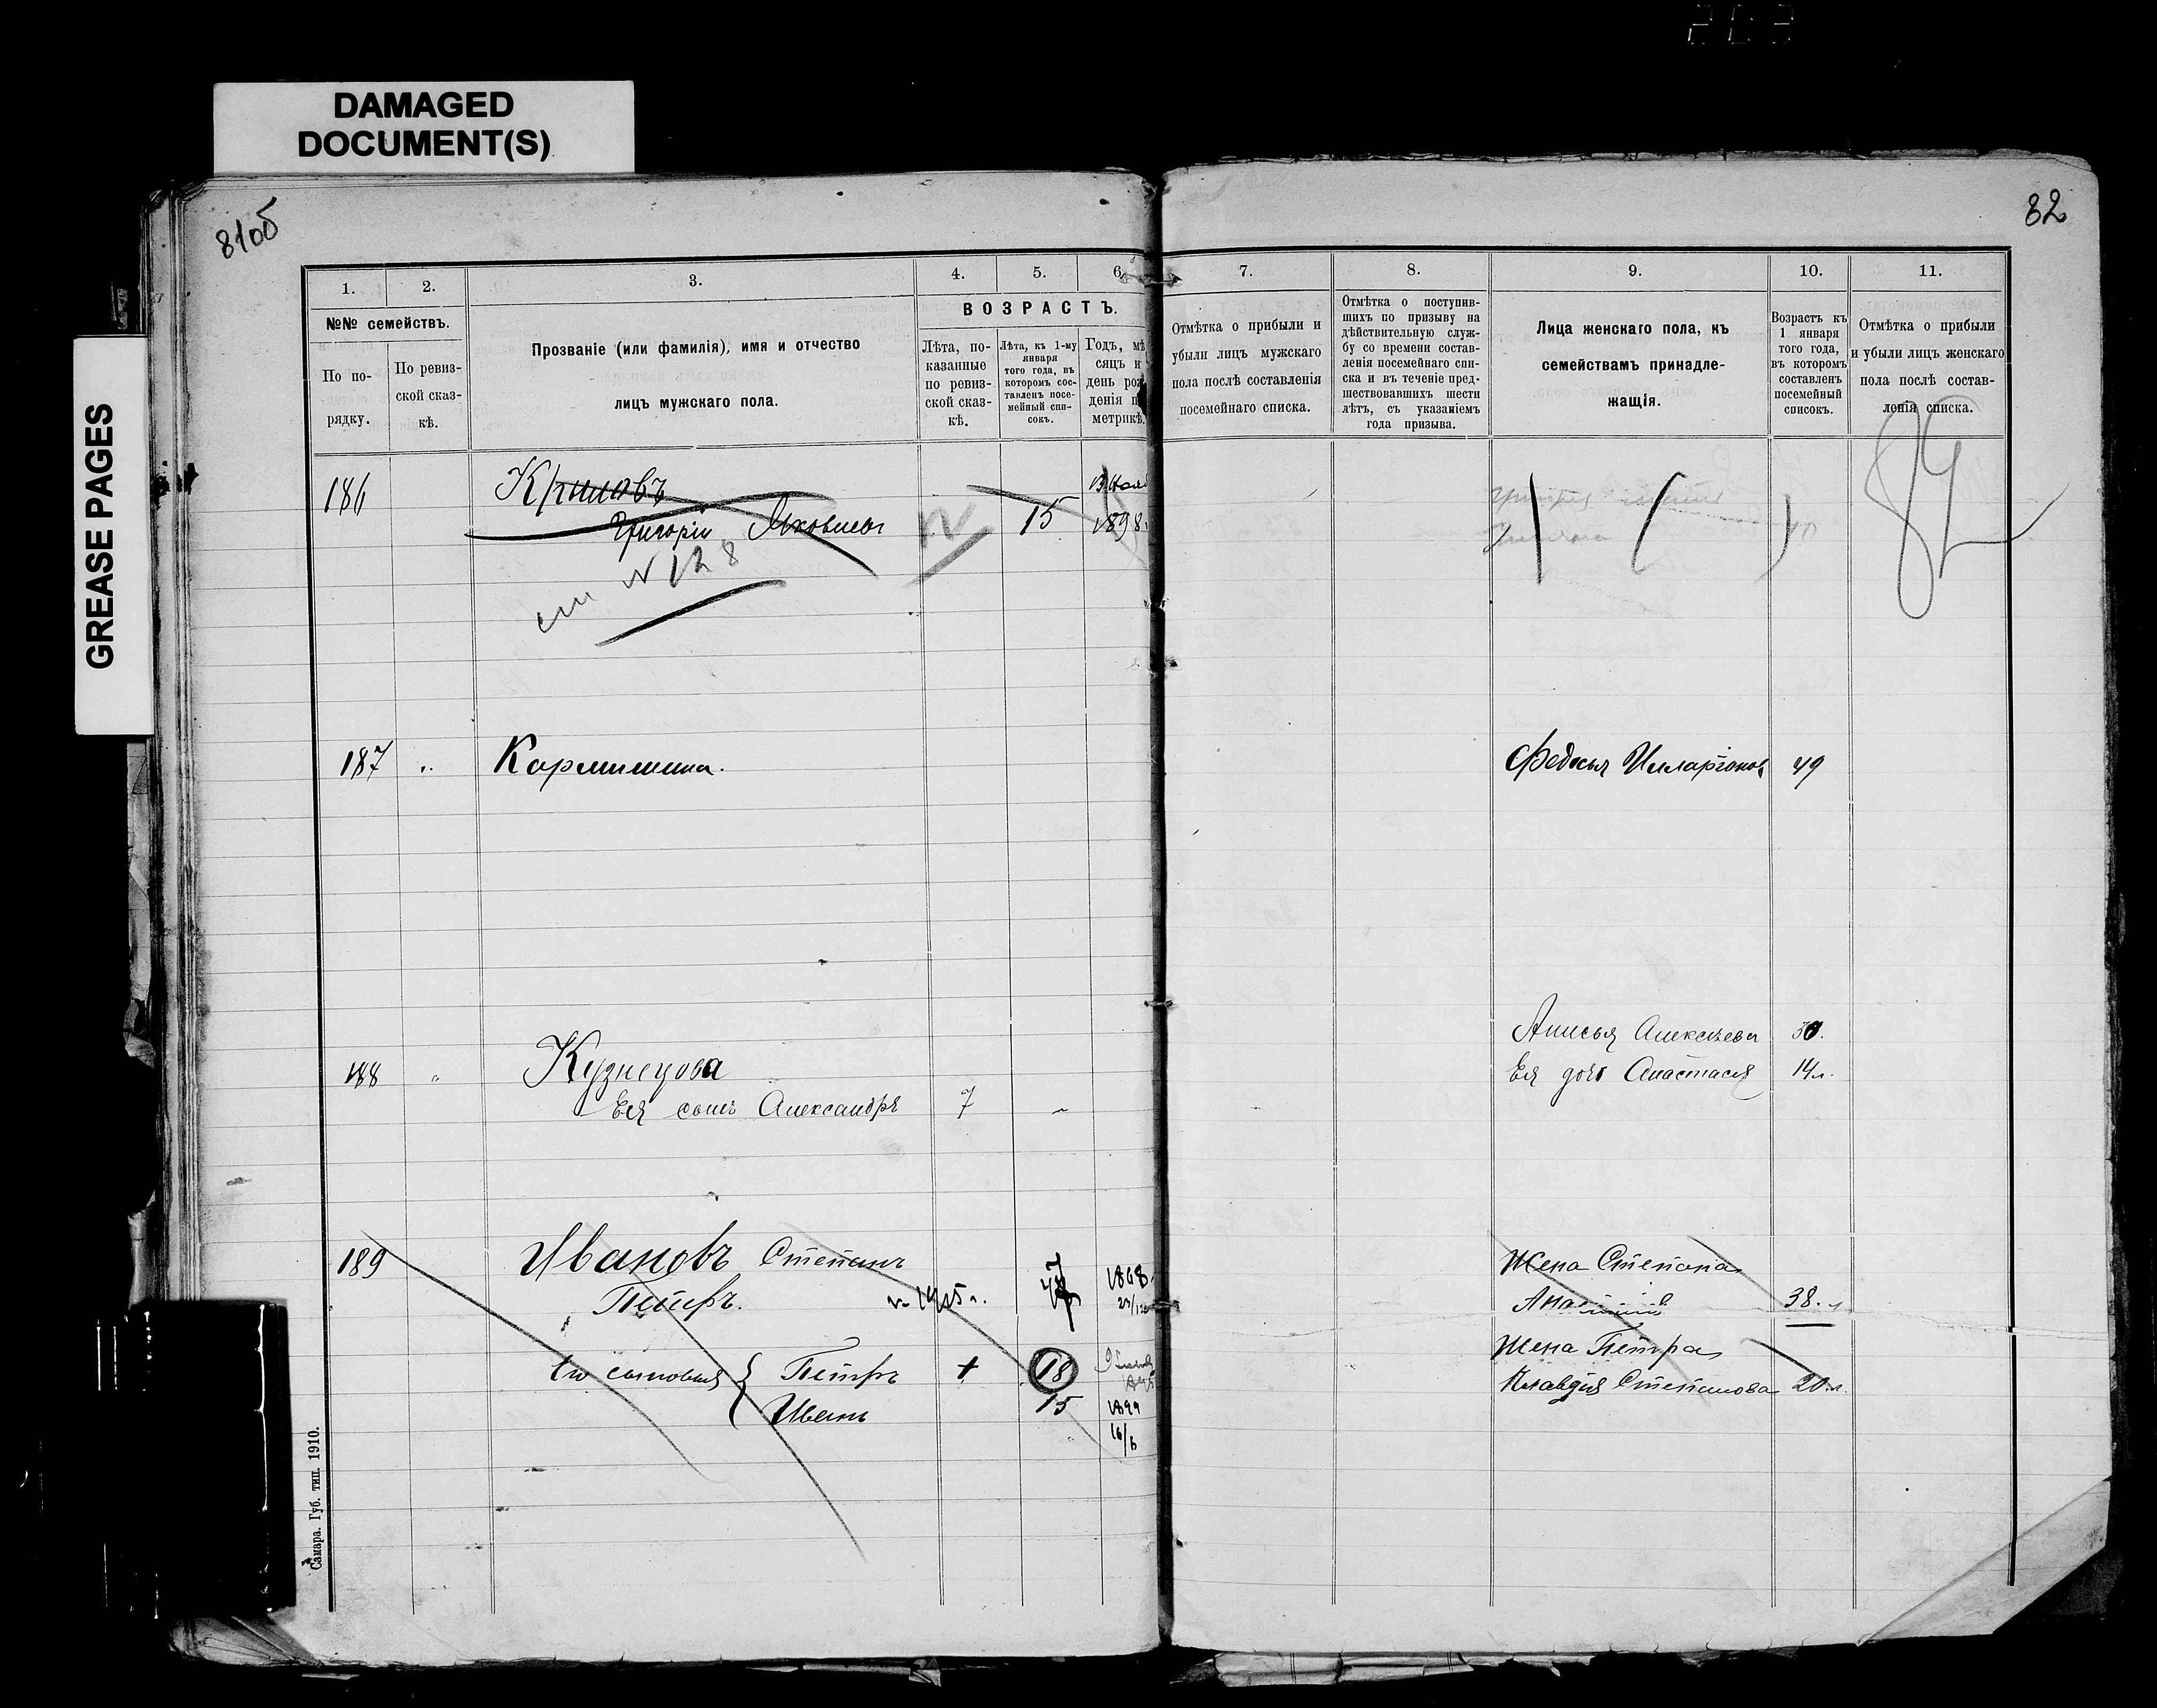 DAMAGED
DOCUMENT(S)
GREASE PAGES
81об
82
1.
2.
3.
4.
5.
6.
№№ семействъ.
По по-
рядку.
По ревиз-
ской сказ-
кѣ.
Прозваніе (или фамилія), имя и отчество
лицъ мужскаго пола.
ВОЗРАСТЪ.
Лѣта, по-
казанные
по ревиз-
ской сказ-
кѣ.
Лѣта, къ 1-му
января
того года, въ
которомъ сос-
тавленъ посе-
мейный спи-
сокъ.
Годъ, мѣ
сяцъ и
день рож
денія п
метрикѣ.
7.
8.
9.
10.
11.
Отмѣтка о прибыли и
убыли лицъ мужскаго
пола послѣ составленія
посемейнаго списка.
Отмѣтка о поступив-
шихъ по призыву на
дѣйствительную служ-
бу со времени состав-
ленія посемейнаго спи-
ска и въ теченіе пред-
шествовавшихъ шести
лѣтъ, съ указаніемъ
года призыва.
Лица женскаго пола, къ
семействамъ принадле-
жащія.
Возрастъ къ
1 января
того года,
въ которомъ
составленъ
посемейный
списокъ.
Отмѣтка о прибыли
и убыли лицъ женскаго
пола послѣ состав-
ленія списка.
186 Крыловъ
Григорій Яковлевъ 15 1898
см N 128
82
187 " Кармишина. Федосья Илларіонов 49
Анисья Алексѣева
188 " Кузнецова Ея дочь Анастасія 14 л.
Ея сынъ Александръ 7 "
189 Ивановъ Степанъ Жена Степана
Петръ. 1915 г. 1868 38.
Жена Петра
Его сыновья { Петръ + 18 Клавдія Степанова 20 л.
Иванъ 15 1899
16/6
Самара. Губ. тип. 1910.